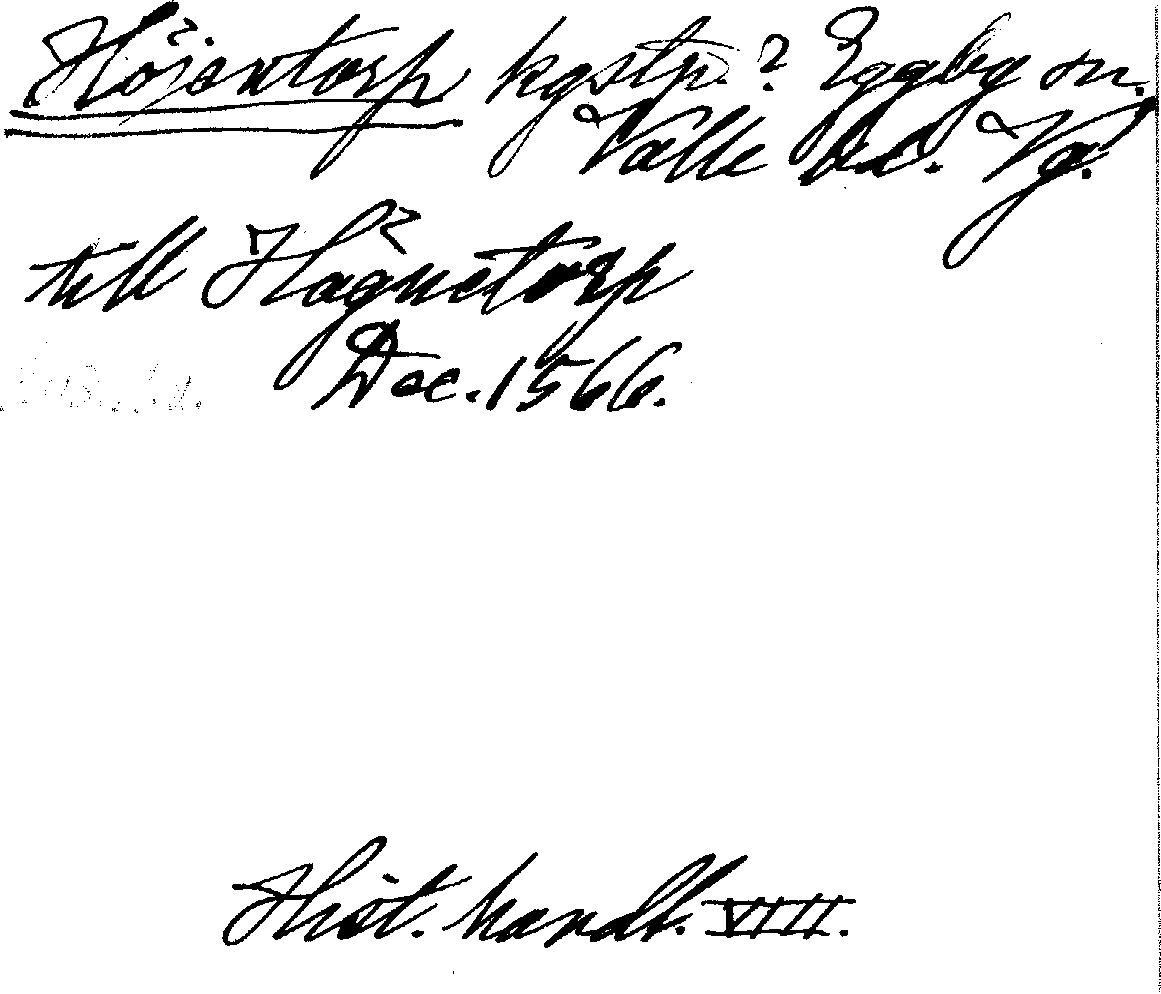 Höjentorp kgstp.? Eggby sn.
Valle hd. Vg.
till Hagnetorp
Dec. 1566.
Hist. handl. VIII.